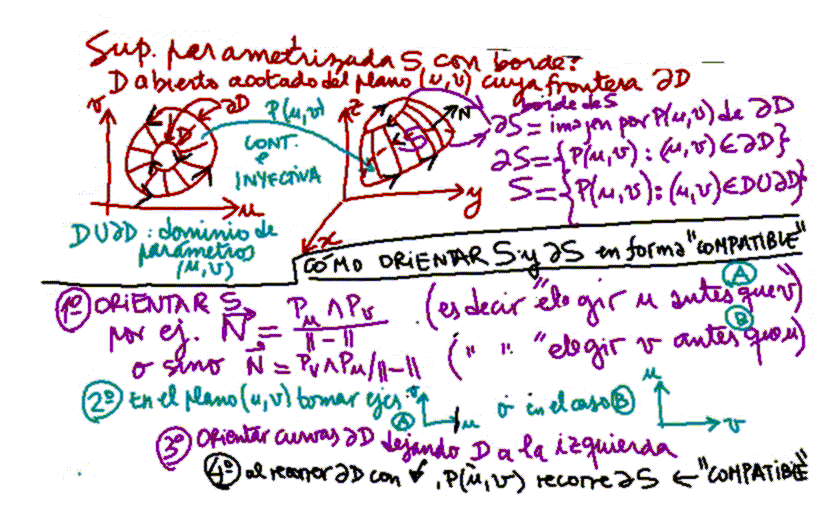 Sup. parametrizada S con borde:
D abierto acotado del plano (u,v) cuya frontera ∂D
v
∂D
D
P(u,v)
CONT.
e
INYECTIVA
u
z
N
S
y
x
borde de S
∂S = imagen por P(u,v) de ∂D
∂S = {P(u,v) : (u,v) ∈ ∂D}
S = {P(u,v) : (u,v) ∈ D∪∂D}
D∪∂D : dominio de
parámetros
(u,v)
CÓMO ORIENTAR S y ∂S en forma "COMPATIBLE"
1º ORIENTAR S
por ej. N = Pu ∧ Pv / ||–|| (es decir "elegir u antes que v) A
o sino N = Pv ∧ Pu / ||–|| (" " "elegir v antes que u) B
2º En el plano (u,v) tomar ejes v u A ó en el caso B u v
3º Orientar curvas ∂D dejando D a la izquierda
4º al recorrer ∂D con , P(u,v) recorre ∂S ← "COMPATIBLE"